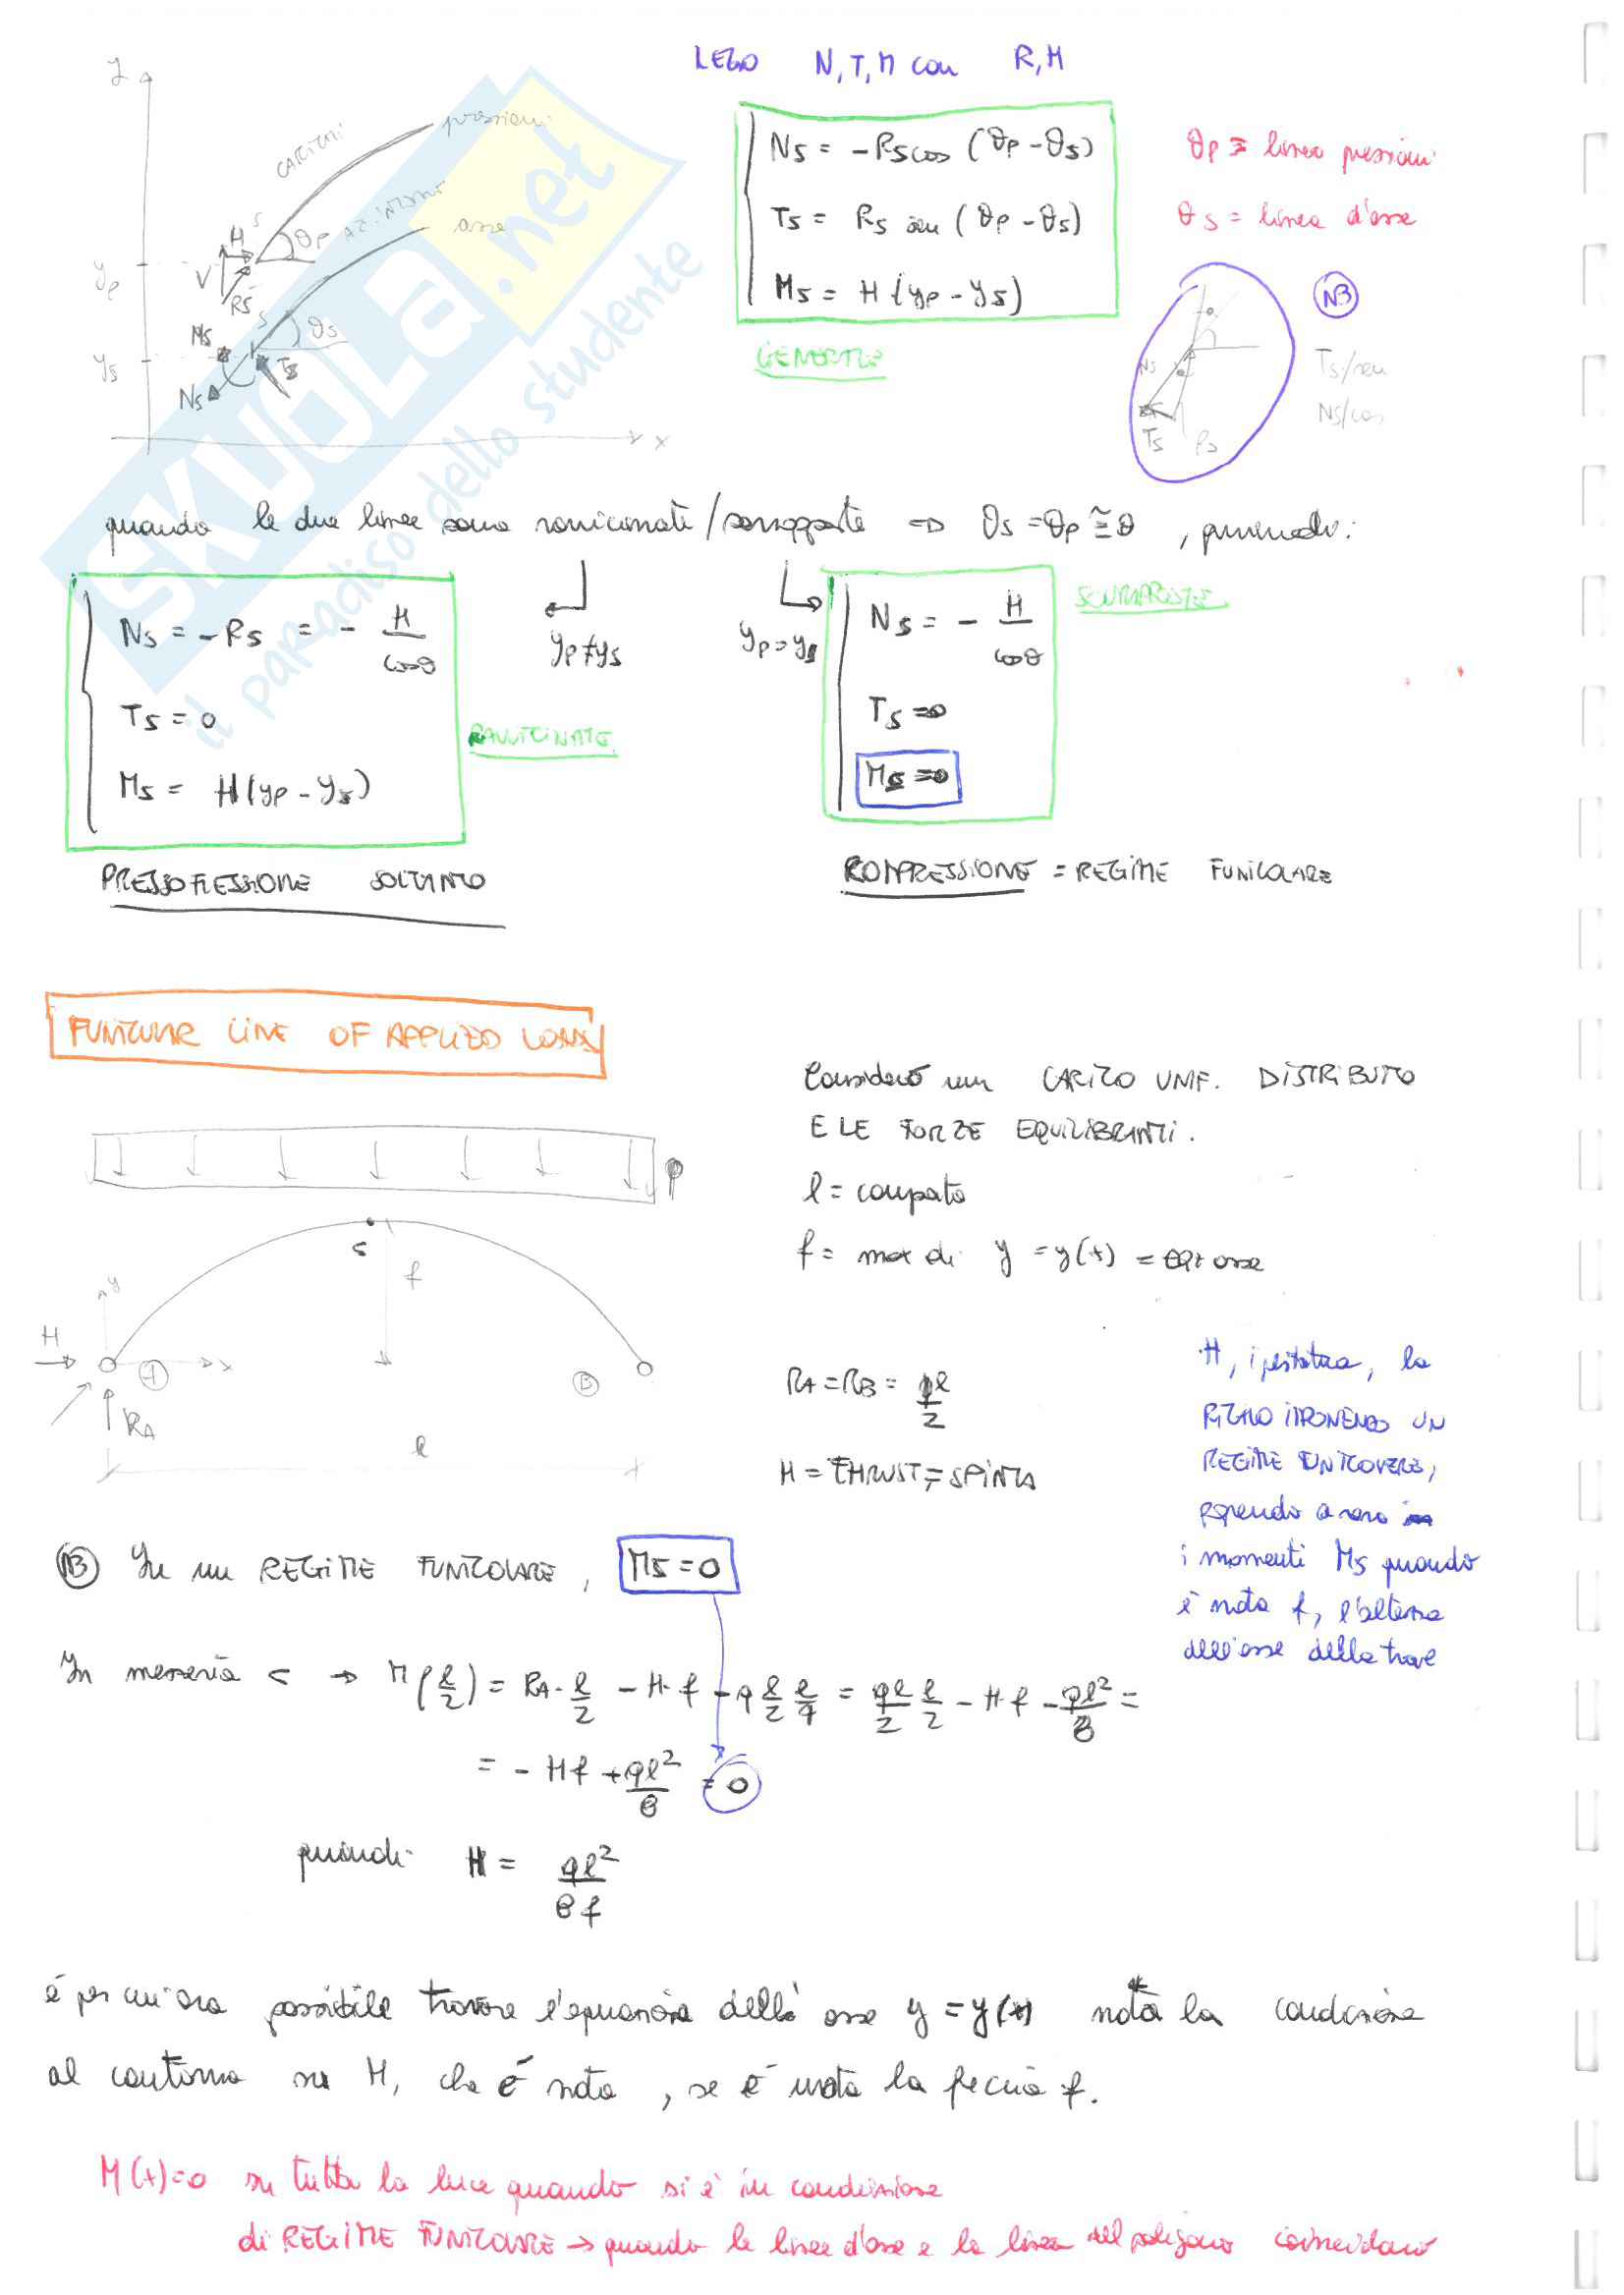 LEGO N, T, M con R, H
y
CARICHI
pressioni
H
S
θp
AZ. INTERNE
asse
yp
V
RS
S
θs
Ms
ys
Ts
Ns
x
Ns = -Rs cos (θp - θs)
Ts = Rs sen (θp - θs)
Ms = H (yp - ys)
GENERALE
θp = linea pressioni
θs = linea d'asse
NB
Ns
Ts
Rs
Ts/sen
Ns/cos
quando le due linee sono ravvicinate/sovrapposte => θs = θp ≅ θ, 
Ns = -Rs = - H/cosθ
Ts = 0
Ms = H (yp - ys)
RAVVICINATE
yp ≠ ys
yp = ys
Ns = - H/cosθ
Ts = 0
Ms = 0
PRESSOFLESSIONE SOLTANTO
COMPRESSIONE = REGIME FUNICOLARE
FUNICULAR LINE OF APPLIED LOADS
Considero un CARICO UNIF. DISTRIBUTO
E LE FORZE EQUILIBRANTI.
p
l = campata
f = max di y = y(x) = eq. asse
S
f
y
H
A
x
B
RA
l
RA = RB = ql/2
H = THRUST = SPINTA
H, iperstatica, la
RICAVO IMPONENDO UN
REGIME FUNICOLARE,
ponendo a zero
i momenti Ms quando
è nota f, l'altezza
dell'asse della trave
NB In un REGIME FUNICOLARE, Ms = 0
In mezzeria -> M(l/2) = RA · l/2 - H · f - q l/2 l/4 = ql/2 l/2 - H f - ql²/8 =
= - Hf + ql²/8 = 0
quindi H = ql²/8f
è per cui ora possibile trovare l'equazione dell'asse y = y(x) nota la condizione
al contorno su H, che è nota, se è nota la freccia f.
M(x) = 0 su tutta la luce quando si è in condizione
di REGIME FUNICOLARE -> quando la linea d'asse e la linea del poligono coincidono